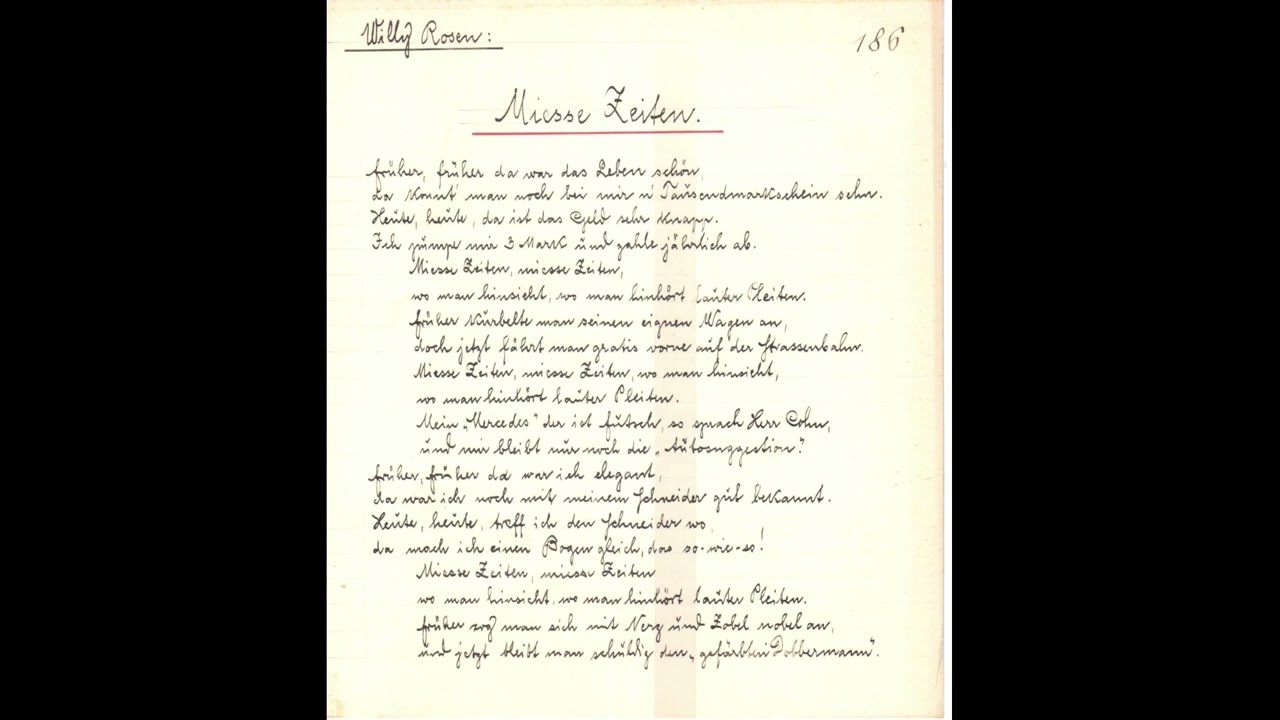 Willy Rosen:
186
Miesse Zeiten.
Früher, früher da war das Leben schön,
da konnt' man noch bei mir n' Tausendmarkschein sehn.
Heute, heute, da ist das Geld sehr knapp.
Ich pumpe mir 3 Mark und zahle jährlich ab.
Miesse Zeiten, miesse Zeiten,
wo man hinsieht, wo man hinhört lauter Pleiten.
Früher kurbelte man seinen eignen Wagen an,
doch jetzt fährt man gratis vorne auf der Strassenbahn.
Miesse Zeiten, miesse Zeiten, wo man hinsieht,
wo man hinhört lauter Pleiten.
Mein „Mercedes" der ist futsch, so sprach Herr Cohn,
und mir bleibt nur noch die „Autosuggestion."
Früher, früher da war ich elegant,
da war ich noch mit meinem Schneider gut bekannt.
Heute, heute, treff ich den Schneider wo,
da mach ich einen Bogen gleich, das so-wie-so!
Miesse Zeiten, miesse Zeiten
wo man hinsieht, wo man hinhört lauter Pleiten.
Früher zog man sich mit Nerz und Zobel nobel an,
und jetzt bleibt man schuldig den „gefärbten Dobbermann".